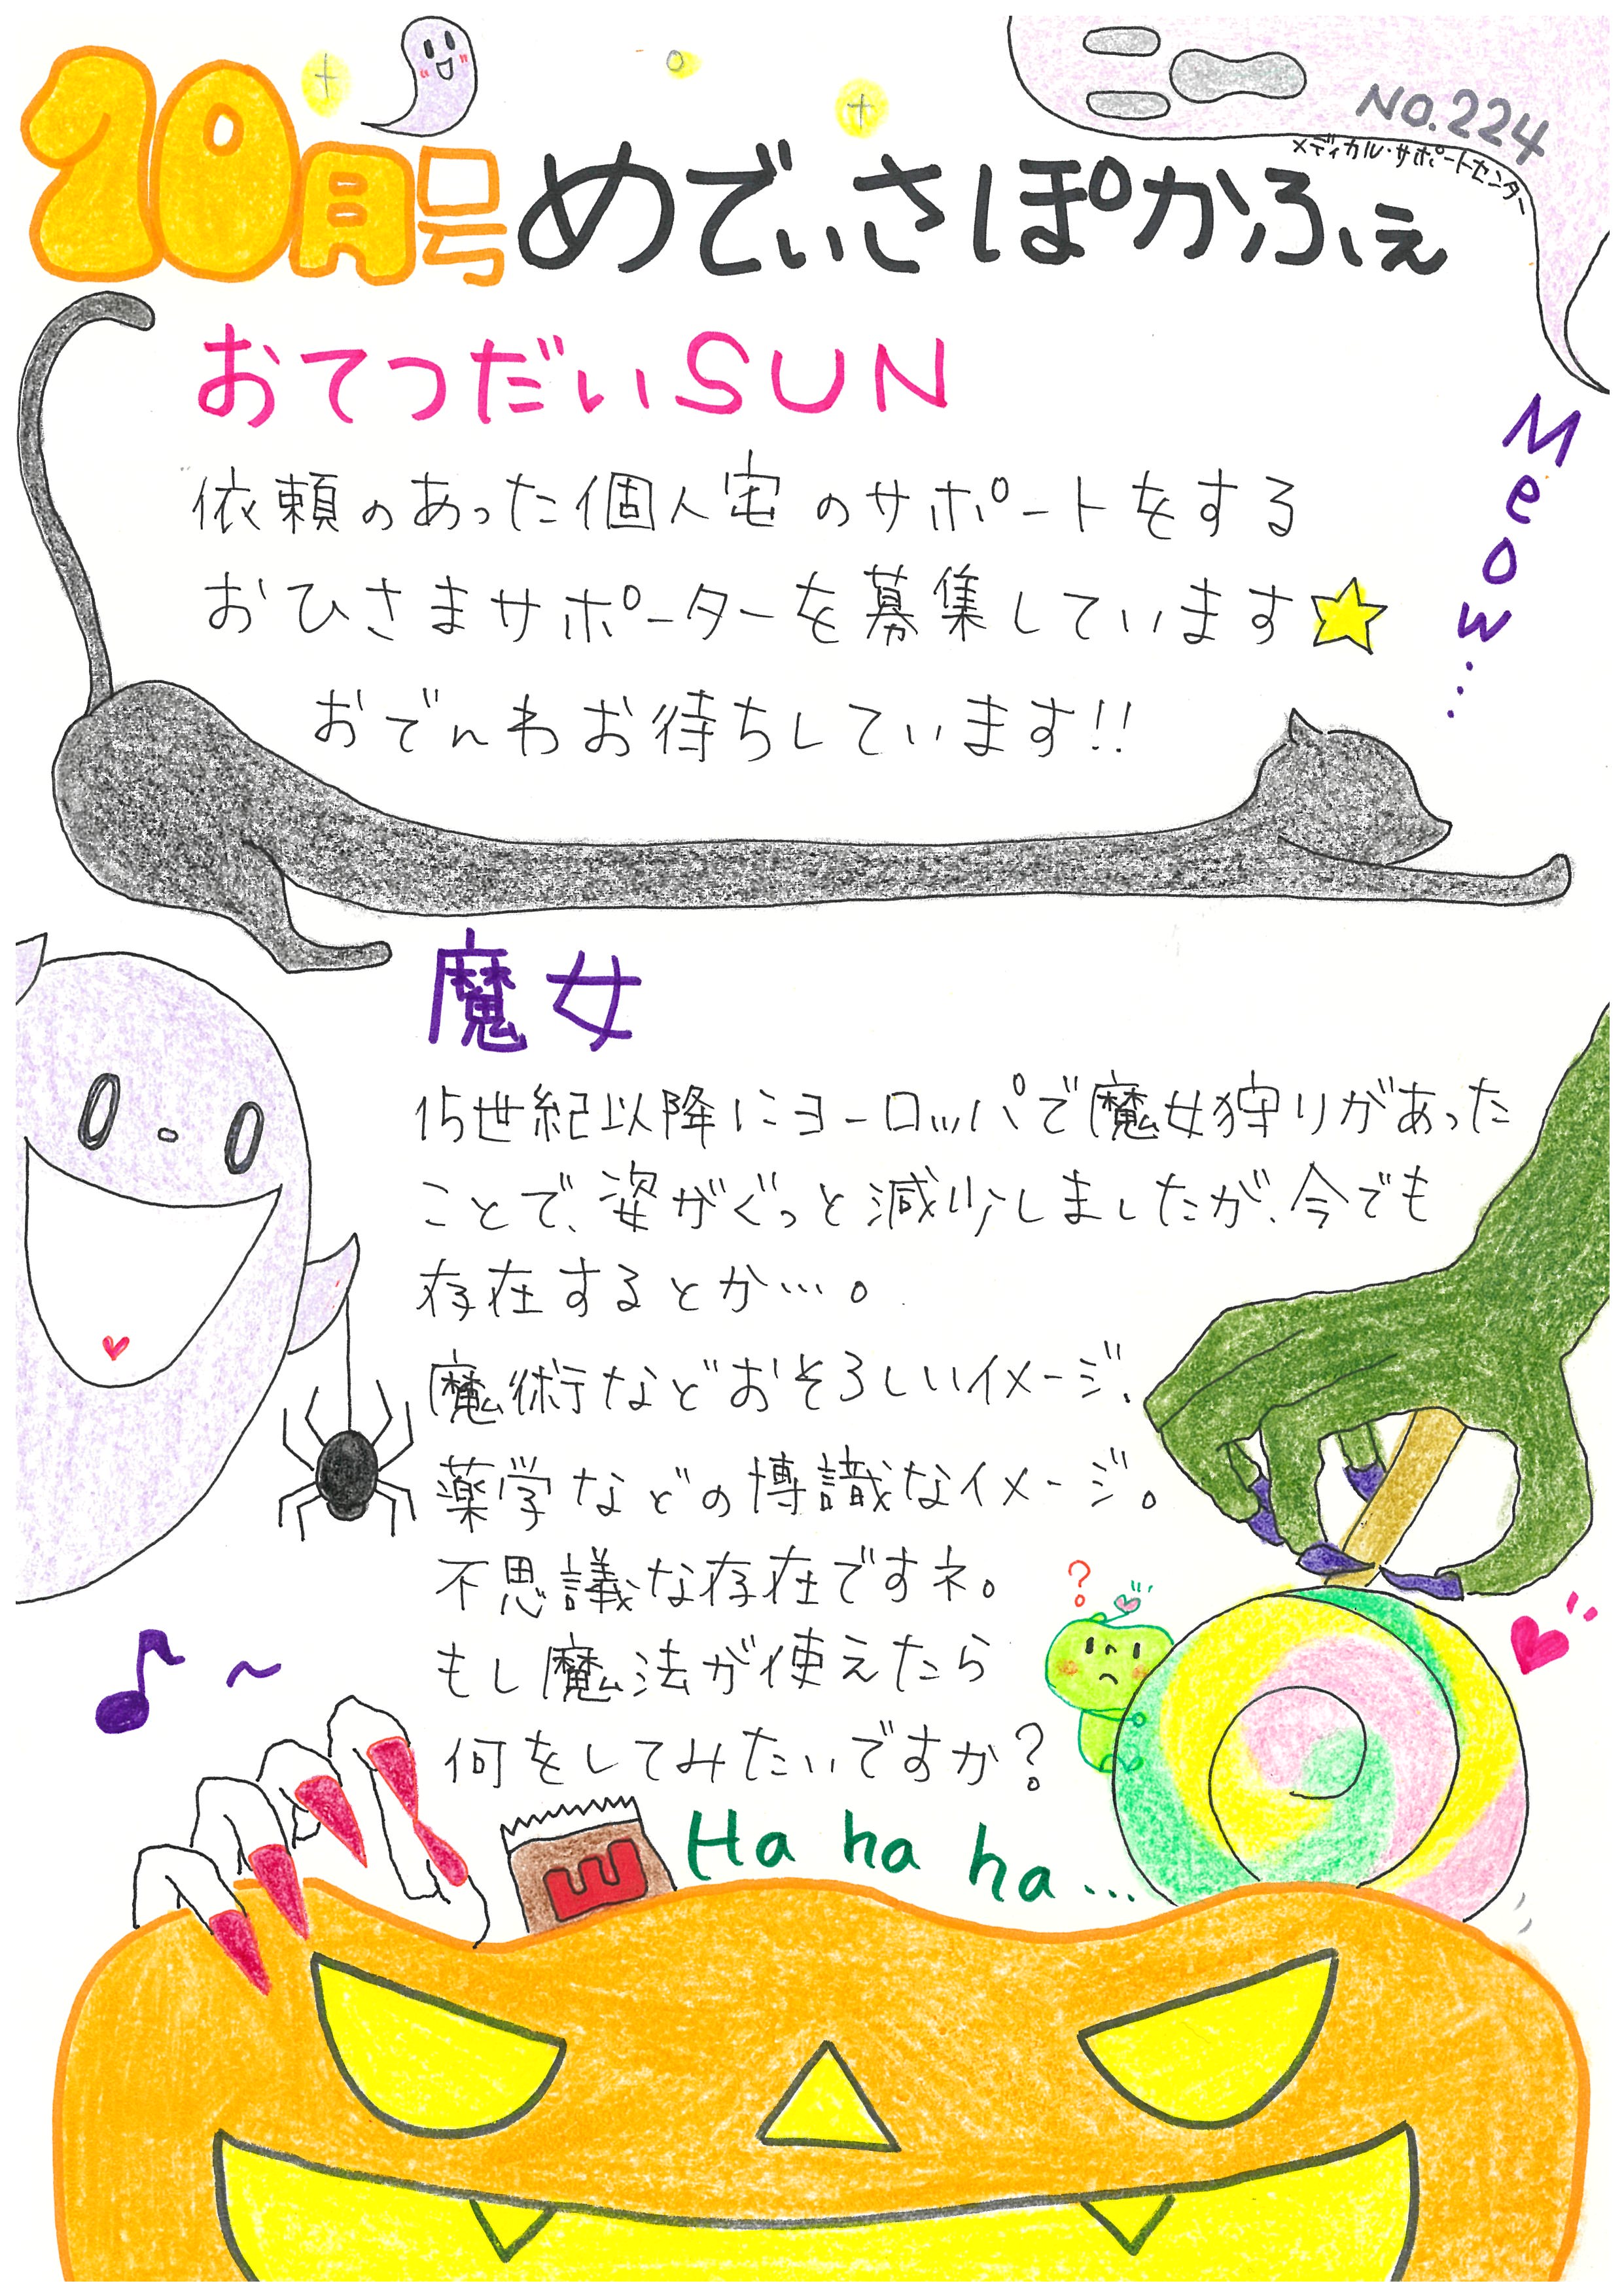 10月号 めでぃさぽかふぇ
NO.224
メディカル・サポートセンター
おてつだいSUN
依頼のあった個人宅のサポートをする
おひさまサポーターを募集しています☆
おでんわお待ちしています!!
Meow...
魔女
15世紀以降にヨーロッパで魔女狩りがあった
ことで、姿がぐっと減少しましたが、今でも
存在するとか…。
魔術などおそろしいイメージ、
薬学などの博識なイメージ。
不思議な存在ですネ。
もし魔法が使えたら
何をしてみたいですか?
?
Ha ha ha...